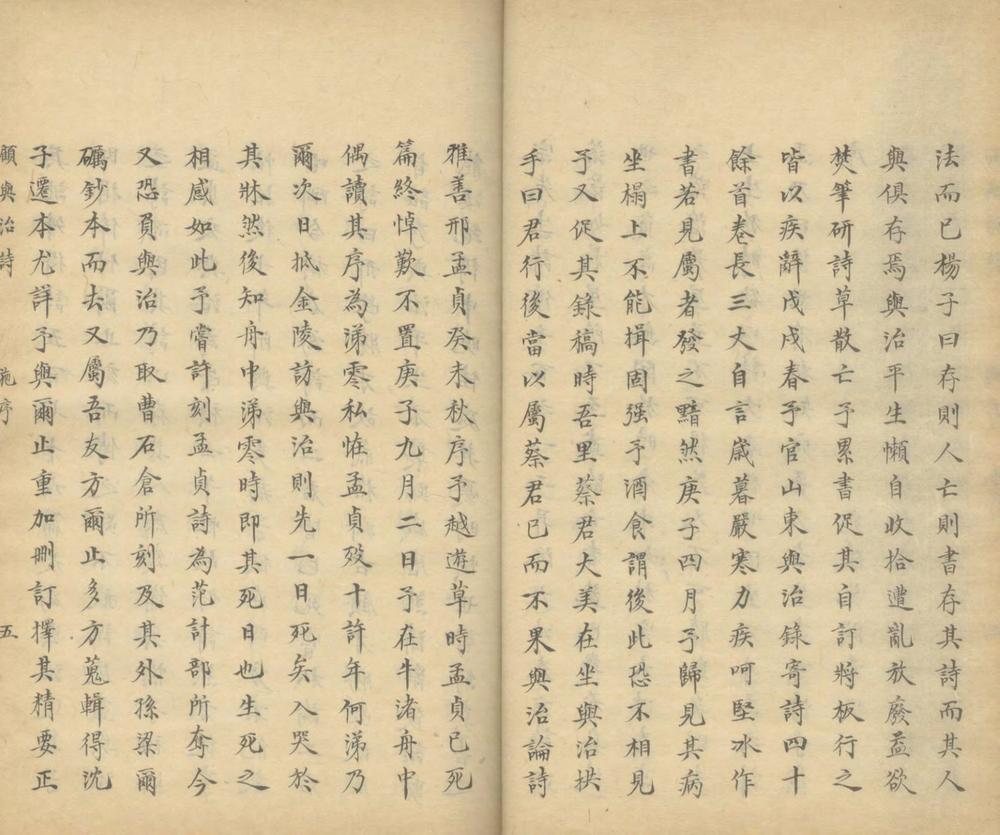 法而已楊子曰存則人亡則書存其詩而其人
與俱存焉與治平生懶自收拾遭亂放廢益欲
焚筆研詩草散亡予累書促其自訂將板行之
皆以疾辭戊戌春予官山東與治錄寄詩四十
餘首卷長三丈自言歲暮嚴寒力疾呵堅冰作
書若見屬者發之黯然庚子四月予歸見其病
坐榻上不能揖固强予酒食謂後此恐不相見
予又促其錄稿時吾里蔡君大美在坐與治拱
手曰君行後當以屬蔡君已而不果與治論詩
雅善邢孟貞癸未秋序予越遊草時孟貞已死
篇終悼歎不置庚子九月二日予在牛渚舟中
偶讀其序為涕零私恠孟貞殁十許年何涕乃
爾次日抵金陵訪與治則先一日死矣入哭於
其牀然後知舟中涕零時即其死日也生死之
相感如此予嘗許刻孟貞詩為范計部所奪今
又恐負與治乃取曹石倉所刻及其外孫梁爾
礪鈔本而去又屬吾友方爾止多方蒐輯得沈
子遷本尤詳予與爾止重加刪訂擇其精要正
顧與治詩 施序 五